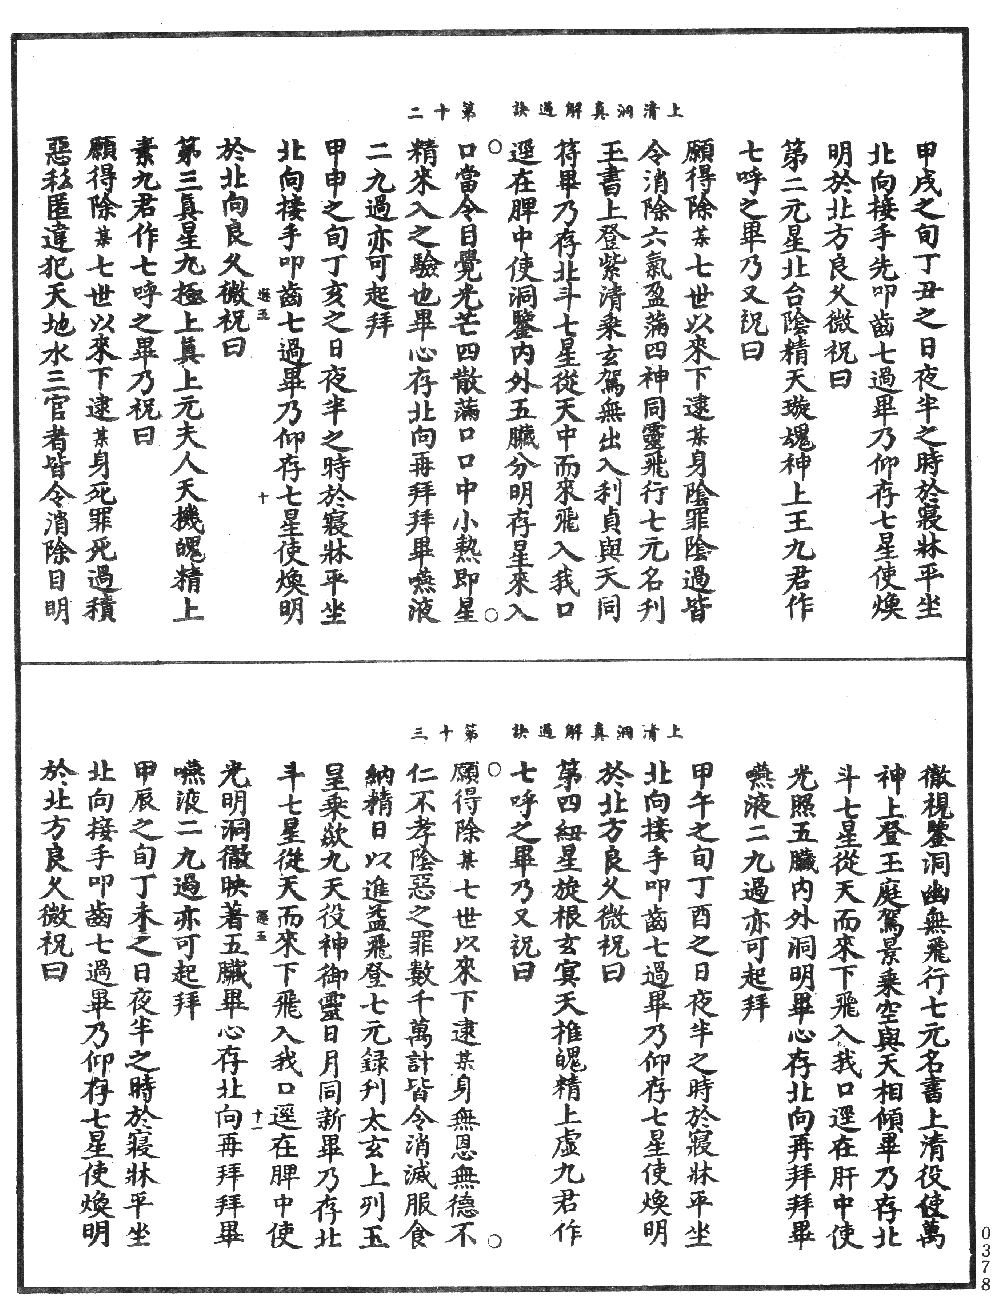 上清洞真解過訣　第十二
甲戌之旬丁丑之日夜半之時於寢牀平坐
北向接手先叩齒七過畢乃仰存七星使煥
明於北方良久微祝曰
第二元星北台陰精天璇魂神上王九君作
七呼之畢乃又祝曰
願得除某七世以來下逮某身陰罪陰過皆
令消除六氣盈滿四神同靈飛行七元名刋
玉書上登紫清乘玄駕無出入利貞與天同
符畢乃存北斗七星從天中而來飛入我口
逕在脾中使洞鑒內外五臟分明存星來入
口當令目覺光芒四散滿口口中小熱即星
精來入之驗也畢心存北向再拜拜畢嚥液
二九過亦可起拜
甲申之旬丁亥之日夜半之時於寢牀平坐
北向接手叩齒七過畢乃仰存七星使煥明
遜五　十
於北向良久微祝曰
第三真星九極上真上元夫人天機魄精上
素九君作七呼之畢乃祝曰
願得除某七世以來下逮某身死罪死過積
惡私匿違犯天地水三官者皆令消除目明
上清洞真解過訣　第十三
徹視鑒洞幽無飛行七元名書上清役使萬
神上登王庭駕景乘空與天相傾畢乃存北
斗七星從天而來下飛入我口逕在肝中使
光照五臟內外洞明畢心存北向再拜拜畢
嚥液二九過亦可起拜
甲午之旬丁酉之日夜半之時於寢牀平坐
北向接手叩齒七過畢乃仰存七星使煥明
於北方良久微祝曰
第四紐星旋根玄冥天權魄精上虛九君作
七呼之畢乃又祝曰
願得除某七世以來下逮某身無恩無德不
仁不孝陰惡之罪數千萬計皆令消滅服食
納精日以進益飛登七元録刋太玄上列玉
皇乘欻九天役神御靈日月同新畢乃存北
斗七星從天而來下飛入我口逕在脾中使
遜五　十一
光明洞徹映著五臟畢心存北向再拜拜畢
嚥液二九過亦可起拜
甲辰之旬丁未之日夜半之時於寢牀平坐
北向接手叩齒七過畢乃仰存七星使煥明
於北方良久微祝曰
0378